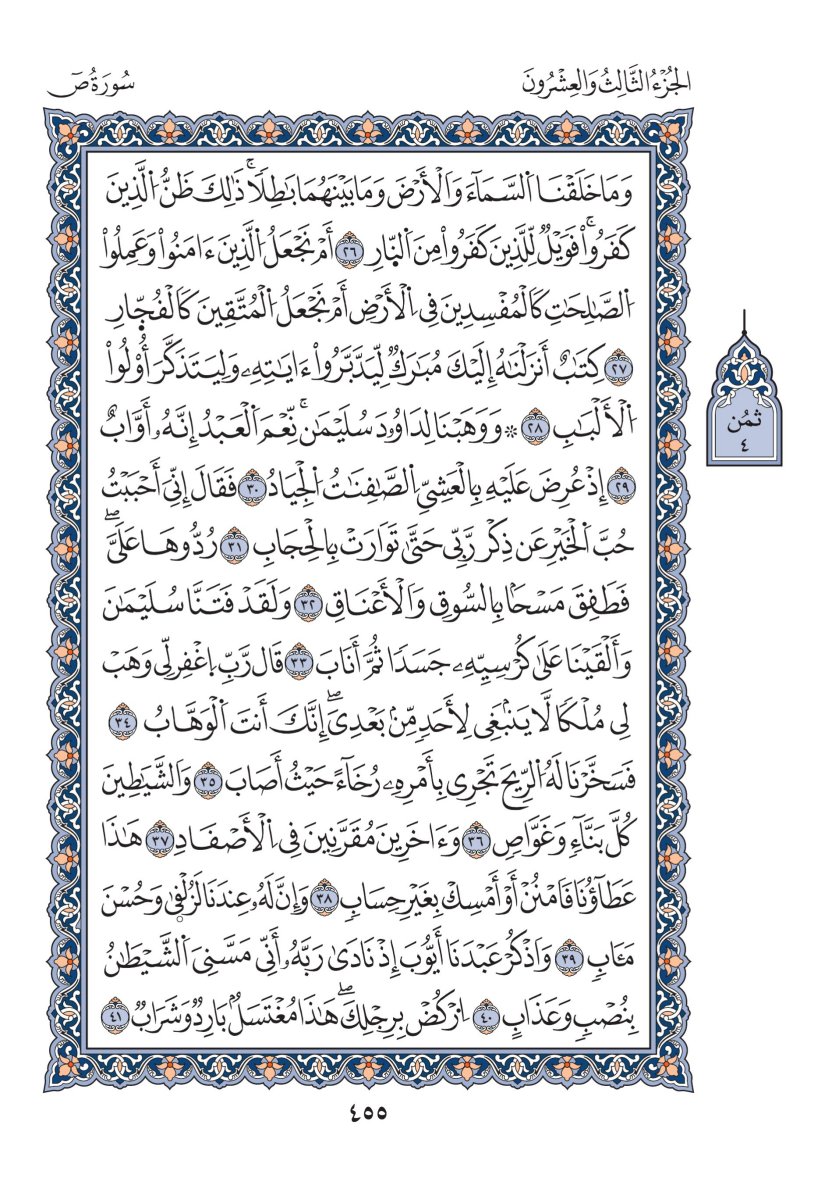 الجُزْءُ الثَّالِثُ وَالعِشْرُونَ
سُورَةُ صٓ
وَمَا خَلَقْنَا اَ۬لسَّمَآءَ وَالْأَرْضَ وَمَا بَيْنَهُمَا بَٰطِلٗاۚ ذَٰلِكَ ظَنُّ اُ۬لَّذِينَ
كَفَرُواْۚ فَوَيْلٞ لِّلَّذِينَ كَفَرُواْ مِنَ اَ۬لنّ۪ارِ ٢٦ أَمْ نَجْعَلُ اُ۬لَّذِينَ ءَامَنُواْ وَعَمِلُواْ
اُ۬لصَّٰلِحَٰتِ كَالْمُفْسِدِينَ فِي اِ۬لْأَرْضِ أَمْ نَجْعَلُ اُ۬لْمُتَّقِينَ كَالْفُجّ۪ارِ
٢٧ كِتَٰبٌ أَنزَلْنَٰهُ إِلَيْكَ مُبَٰرَكٞ لِّيَدَّبَّرُواْ ءَايَٰتِهِۦ وَلِيَتَذَكَّرَ أُوْلُواْ
اُ۬لْأَلْبَٰبِ ٢٨ ۞ وَوَهَبْنَا لِدَاوُۥدَ سُلَيْمَٰنَۚ نِعْمَ اَ۬لْعَبْدُ إِنَّهُۥ أَوَّابٌ
٢٩ إِذْ عُرِضَ عَلَيْهِ بِالْعَشِيِّ اِ۬لصَّٰفِنَٰتُ اُ۬لْجِيَادُ ٣٠ فَقَالَ إِنِّيَ أَحْبَبْتُ
حُبَّ اَ۬لْخَيْرِ عَن ذِكْر رَّبِّي حَتَّىٰ تَوَارَتْ بِالْحِجَابِ ٣١ رُدُّوهَا عَلَيَّۖ
فَطَفِقَ مَسْحَۢا بِالسُّوقِ وَالْأَعْنَاقِ ٣٢ وَلَقَدْ فَتَنَّا سُلَيْمَٰنَ
وَأَلْقَيْنَا عَلَىٰ كُرْسِيِّهِۦ جَسَدٗا ثُمَّ أَنَابَ ٣٣ قَال رَّبِّ اِ۪غْفِر لِّي وَهَبْ
لِي مُلْكٗا لَّا يَنۢبَغِي لِأَحَدٖ مِّنۢ بَعْدِيَۖ إِنَّكَ أَنتَ اَ۬لْوَهَّابُ ٣٤
فَسَخَّرْنَا لَهُ اُ۬لرِّيحَ تَجْرِي بِأَمْرِهِۦ رُخَآءً حَيْثُ أَصَابَ ٣٥ وَالشَّيَٰطِينَ
كُلَّ بَنَّآءٖ وَغَوَّاصٖ ٣٦ وَءَاخَرِينَ مُقَرَّنِينَ فِي اِ۬لْأَصْفَادِ ٣٧ هَٰذَا
عَطَآؤُنَا فَامْنُنْ أَوْ أَمْسِكْ بِغَيْرِ حِسَابٖ ٣٨ وَإِنَّ لَهُۥ عِندَنَا لَزُلْف۪ىٰ وَحُسْنَ
مَـَٔابٖ ٣٩ وَاذْكُرْ عَبْدَنَا أَيُّوبَ إِذْ نَادَىٰ رَبَّهُۥ أَنِّي مَسَّنِيَ اَ۬لشَّيْطَٰنُ
بِنُصْبٖ وَعَذَابٍ ٤٠ اِ۟رْكُضْ بِرِجْلِكَۖ هَٰذَا مُغْتَسَلُۢ بَارِدٞ وَشَرَابٞ ٤١
ثمُن
٤
٤٥٥